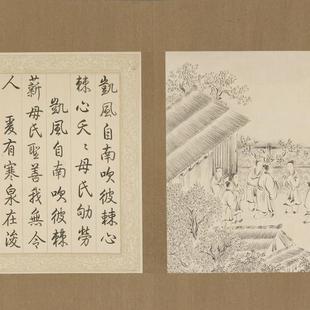 凱風自南吹彼棘心
棘心夭〻母氏劬勞
凱風自南吹彼棘
薪母氏聖善我無令
人　爰有寒泉在浚